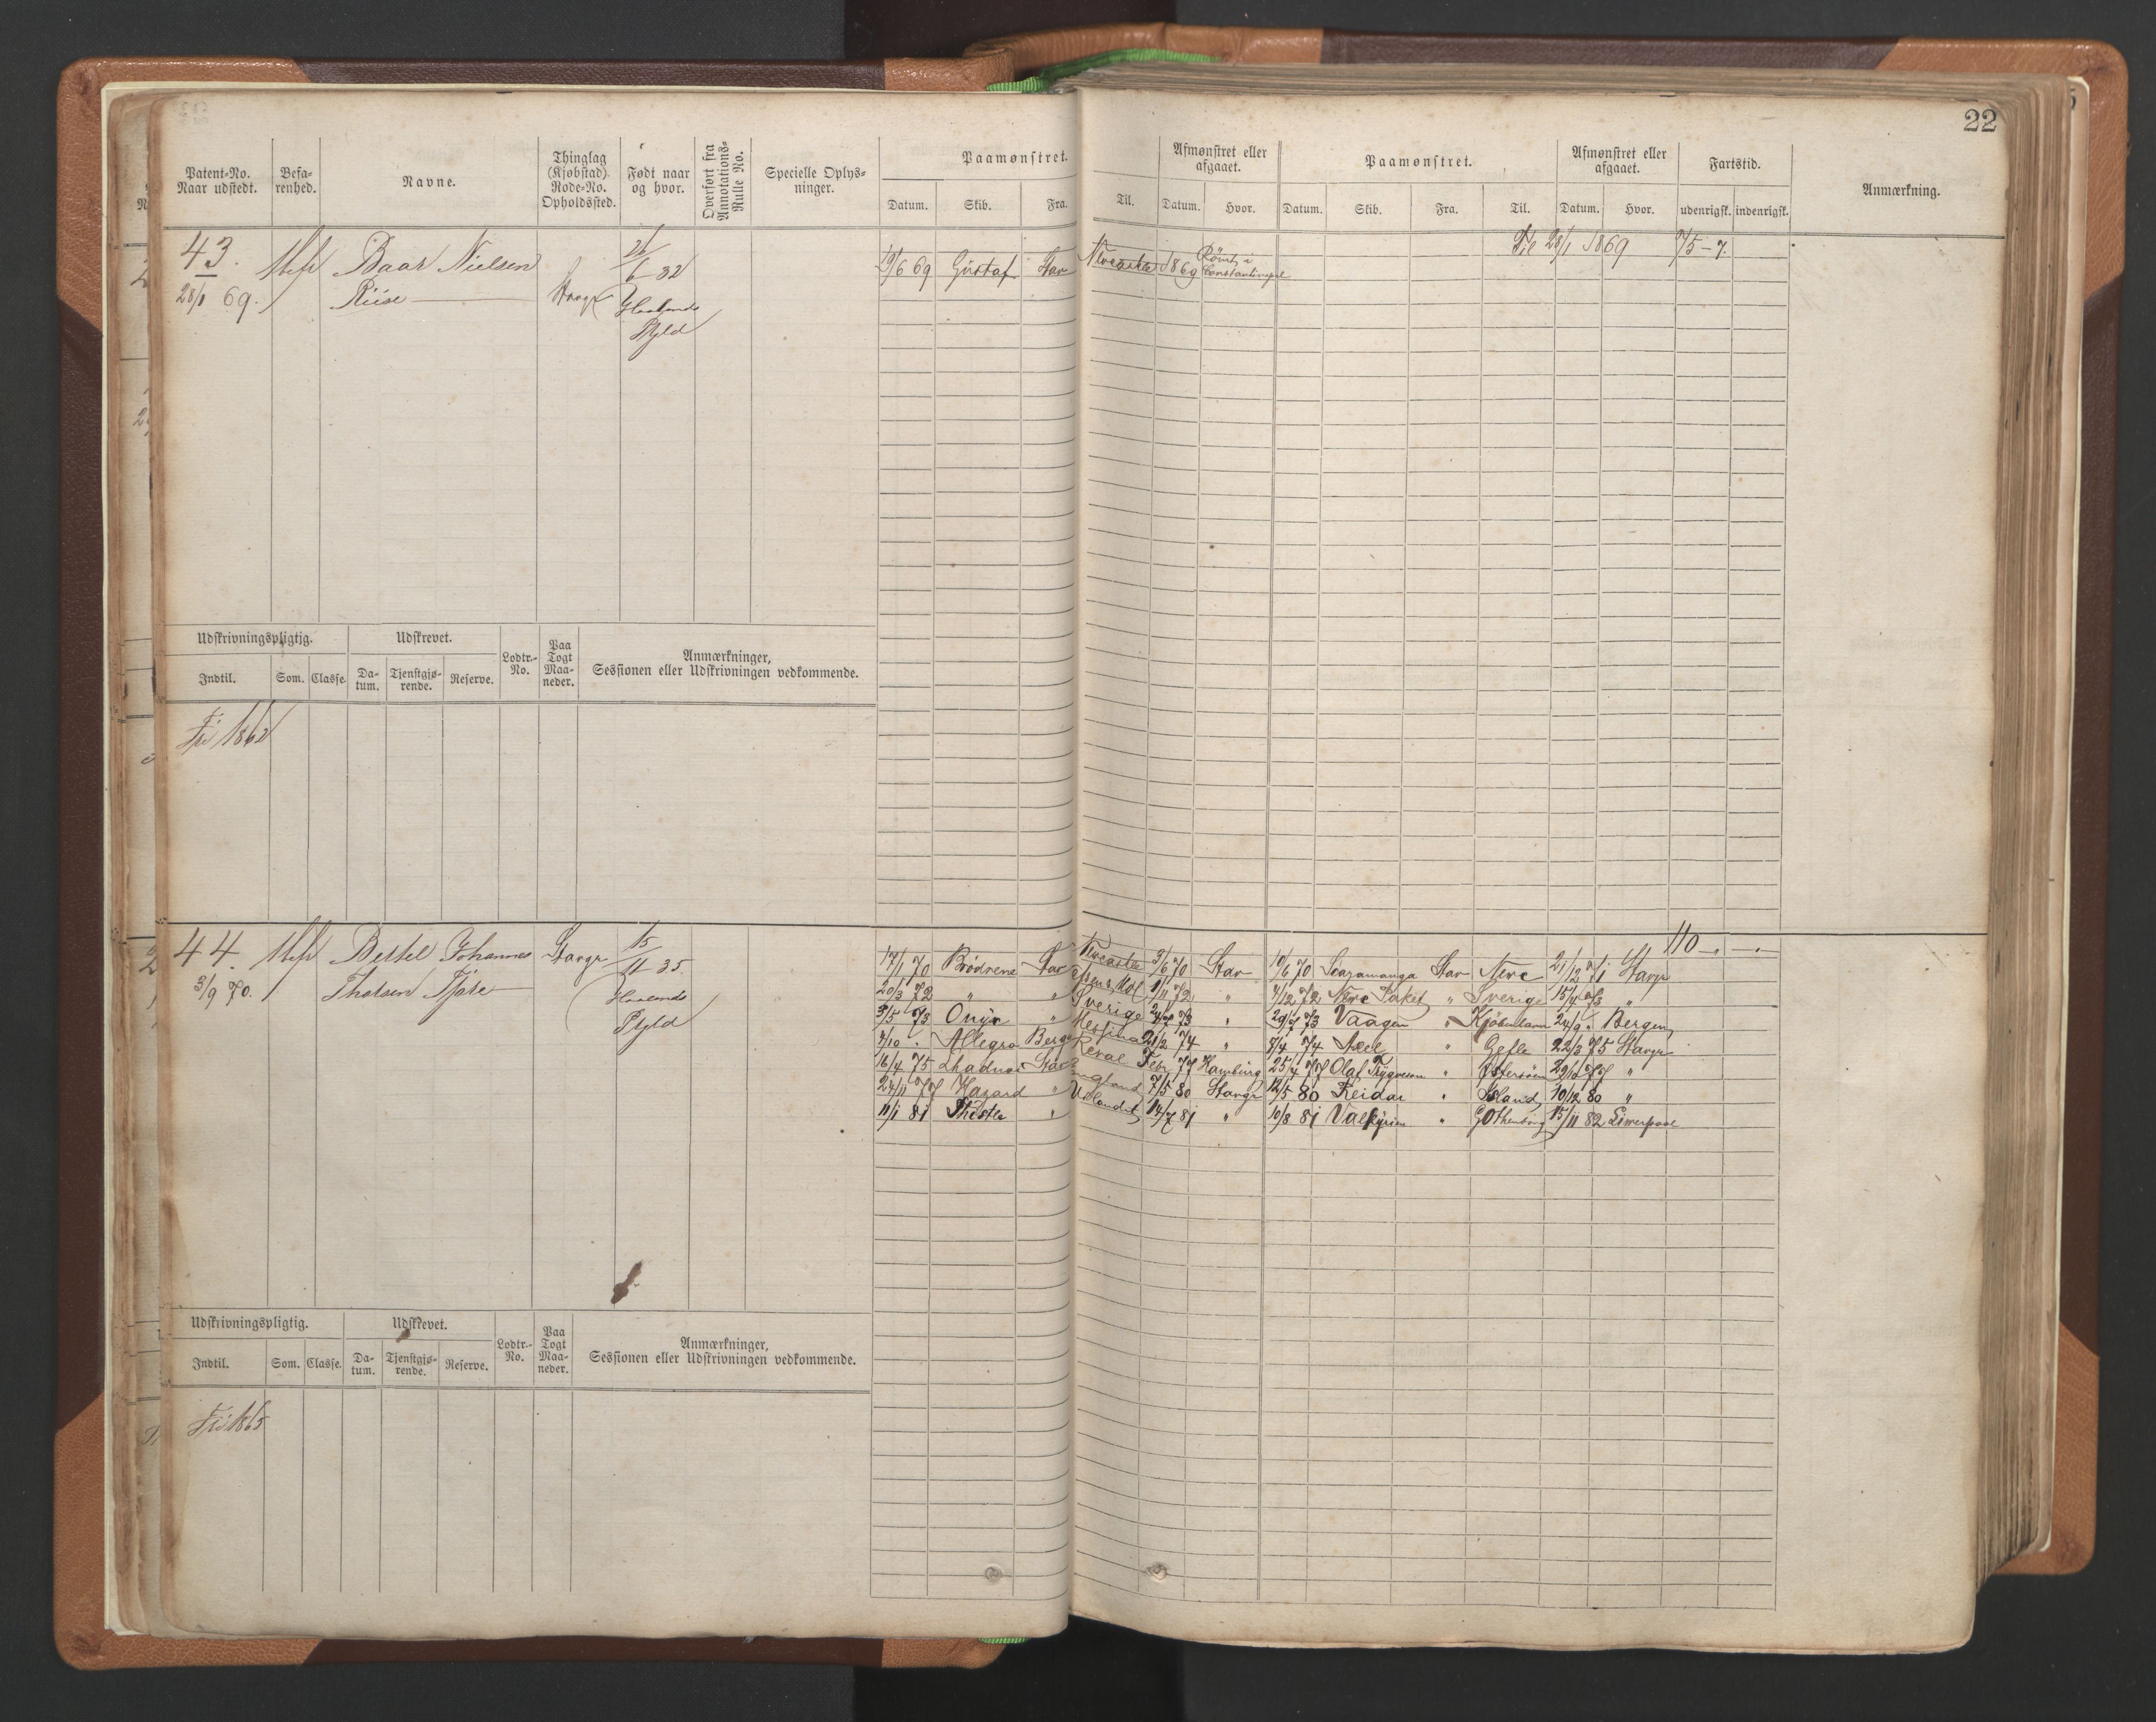 22
Patent-No. Naar udstedt.
Befarenhed.
Navne.
Thinglag (Kjøbstad). Rode-No. Opholdssted.
Født naar og hvor.
Overført fra Annotations-Rulle No.
Specielle Oplysninger.
Paamønstret.
Datum. Skib. Fra. Til.
Afmønstret eller afgaaet.
Datum. Hvor.
Paamønstret.
Datum. Skib. Fra. Til.
Afmønstret eller afgaaet.
Datum. Hvor.
Fartstid.
udenrigsk. indenrigsk.
Anmærkning.
43. Baar Nielsen 26/6 32 19/6 69 Gustaf Stav Newcastle 1869 Rømt i Constantinopel Til 28/1 1869
28/1 69. Riise Stavgr Haalands Pgld
Udskrivningspligtig. Udskrevet. Lodtr.-No. Paa Togt Maaneder. Anmærkninger, Sessionen eller Udskrivningen vedkommende.
Indtil. Som. Classe. Datum. Tjenstgjørende. Reserve.
Fri 1862
44. Bertel Johannes Stavgr 15/11 35.
3/9 70. Tholsen Tjøre Haalands Pgld
110
17/1 70 Brødrene Stav Newcastle 3/6 70 Stav 10/6 70 Scaramanga Stav Newc 21/12 71 Stavgr
20/3 72 " " 1/11 72 " 4/12 72 Newc Paket " Sverige 15/4 73 "
3/5 73 Onyx " Sverige 24/7 73 " 29/7 73 Vaagen " Kjøbenhavn 24/9 " Bergen
4/10 " Allegro Berg Messina 21/2 74 " 7/4 74 Axel " Gefle 22/3 75 Stavgr
16/4 75 Stav Reval Febr 77 Hamburg 25/4 77 Olaf Trygveson " Østersøen 29/10 77 "
24/11 77 Hazard " England 7/5 80 Stavgr 12/5 80 Reidar " Island 10/12 80 "
11/1 81 Thistle " Udlandet 14/7 81 " 10/8 81 Valkyrien " Gothenborg 15/11 82 Liverpool
Udskrivningspligtig. Udskrevet. Lodtr.-No. Paa Togt Maaneder. Anmærkninger, Sessionen eller Udskrivningen vedkommende.
Indtil. Som. Classe. Datum. Tjenstgjørende. Reserve.
Fri 1865